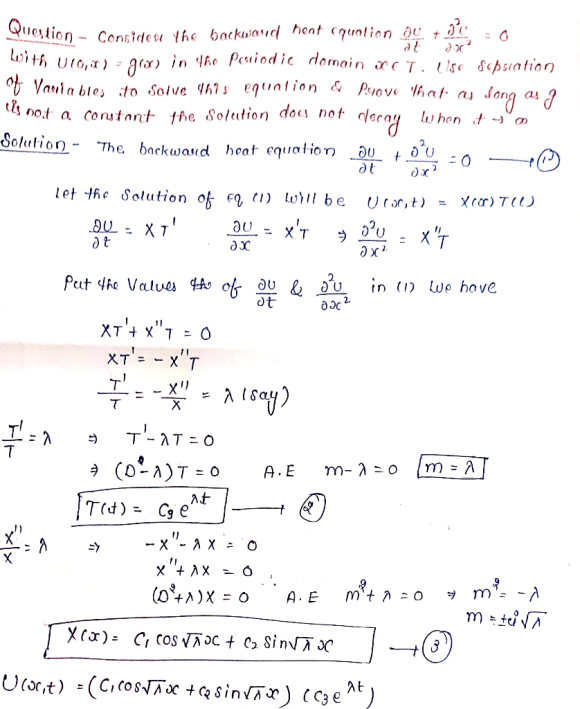 Question - Consider the backward heat equation ∂U/∂t + ∂²U/∂x² = 0
with U(0,x) = g(x) in the Periodic domain x ∈ T. Use Sepration
of Variables to solve this equation & Prove that as long as g
is not a constant the Solution does not decay when t → ∞
Solution - The backward heat equation ∂U/∂t + ∂²U/∂x² = 0 → (1)
Let the Solution of eq (1) will be U(x,t) = X(x) T(t)
∂U/∂t = XT' ∂U/∂x = X'T ⇒ ∂²U/∂x² = X''T
Put the Values of ∂U/∂t & ∂²U/∂x² in (1) we have
XT' + X''T = 0
XT' = -X''T
T'/T = -X''/X = λ (say)
T'/T = λ ⇒ T' - λT = 0
⇒ (D - λ)T = 0 A.E m - λ = 0 m = λ
T(t) = C3 e^λt → (2)
X''/X = λ ⇒ -X'' - λX = 0
X'' + λX = 0
(D² + λ)X = 0 A.E m² + λ = 0 ⇒ m² = -λ
m = ±i√λ
X(x) = C1 cos√λx + C2 sin√λx → (3)
U(x,t) = (C1 cos√λx + C2 sin√λx) (C3 e^λt)